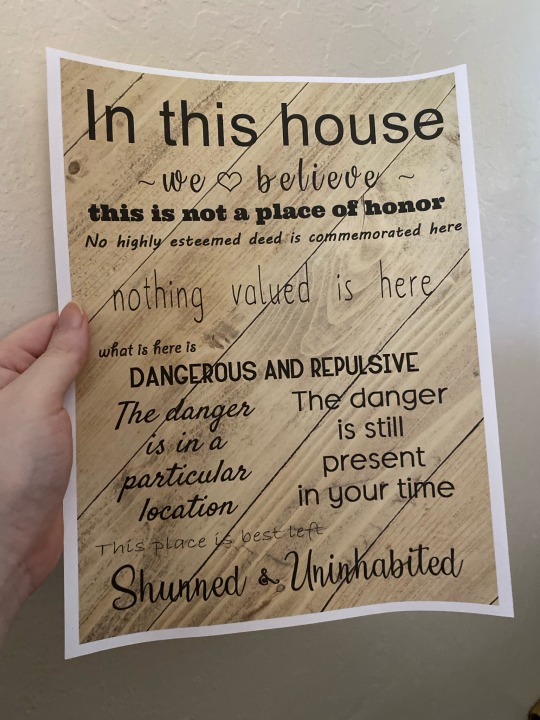 In this house
~ we ♡ believe ~
this is not a place of honor
No highly esteemed deed is commemorated here
nothing valued is here
what is here is
DANGEROUS AND REPULSIVE
The danger
is in a
particular
location
The danger
is still
present
in your time
This place is best left
Shunned & Uninhabited